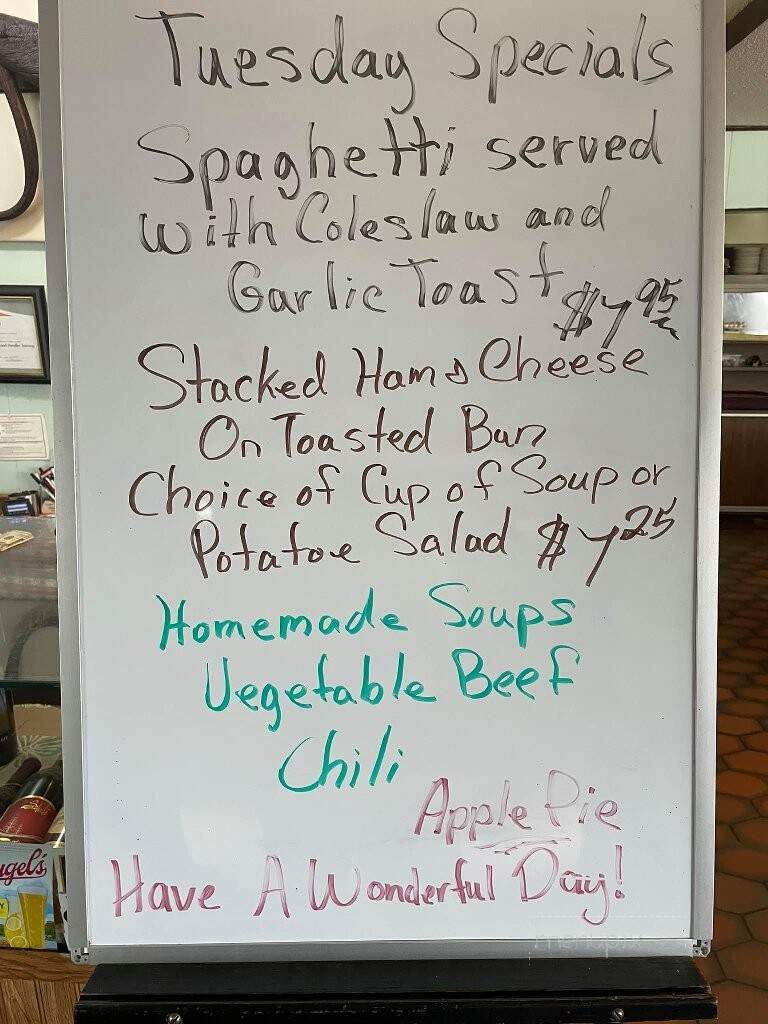 Tuesday Specials
Spaghetti served
with Coleslaw and
Garlic Toast $7 95
Stacked Ham & Cheese
On Toasted Bun
Choice of Cup of Soup or
Potatoe Salad $7 25
Homemade Soups
Vegetable Beef
Chili
Apple Pie
Have A Wonderful Day!
ugel's